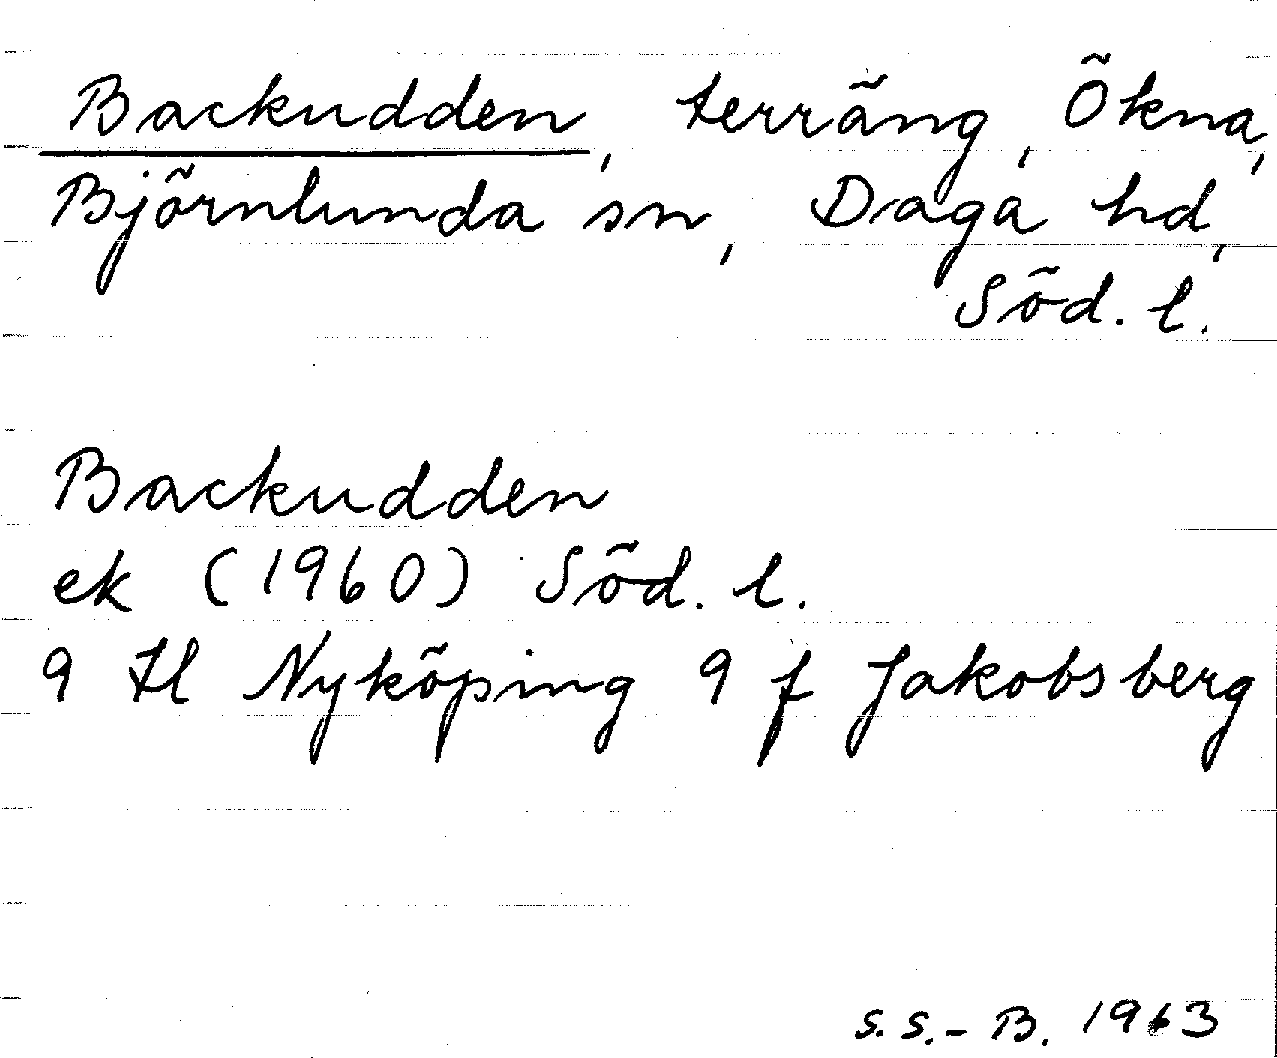 Backudden, terräng, Ökna,
Björnlunda sn, Daga hd,
Söd. l.
Backudden
ek (1960) Söd. l.
9 H Nyköping 9 f Jakobsberg
S. S. - B. 1963